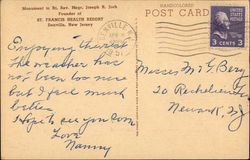 Monument to Rt. Rev. Msgr. Joseph R. Joch
Founder of
ST. FRANCIS HEALTH RESORT
Denville, New Jersey
HANDCOLORED
POST CARD
DENVILLE
3 CENTS 3
Enjoying the rest
The weather has
not been too nice
but I feel much
better
Hope to see you soon
Love
Nanny
Misses M G Berg
20 Rochelieu
Newark, NJ